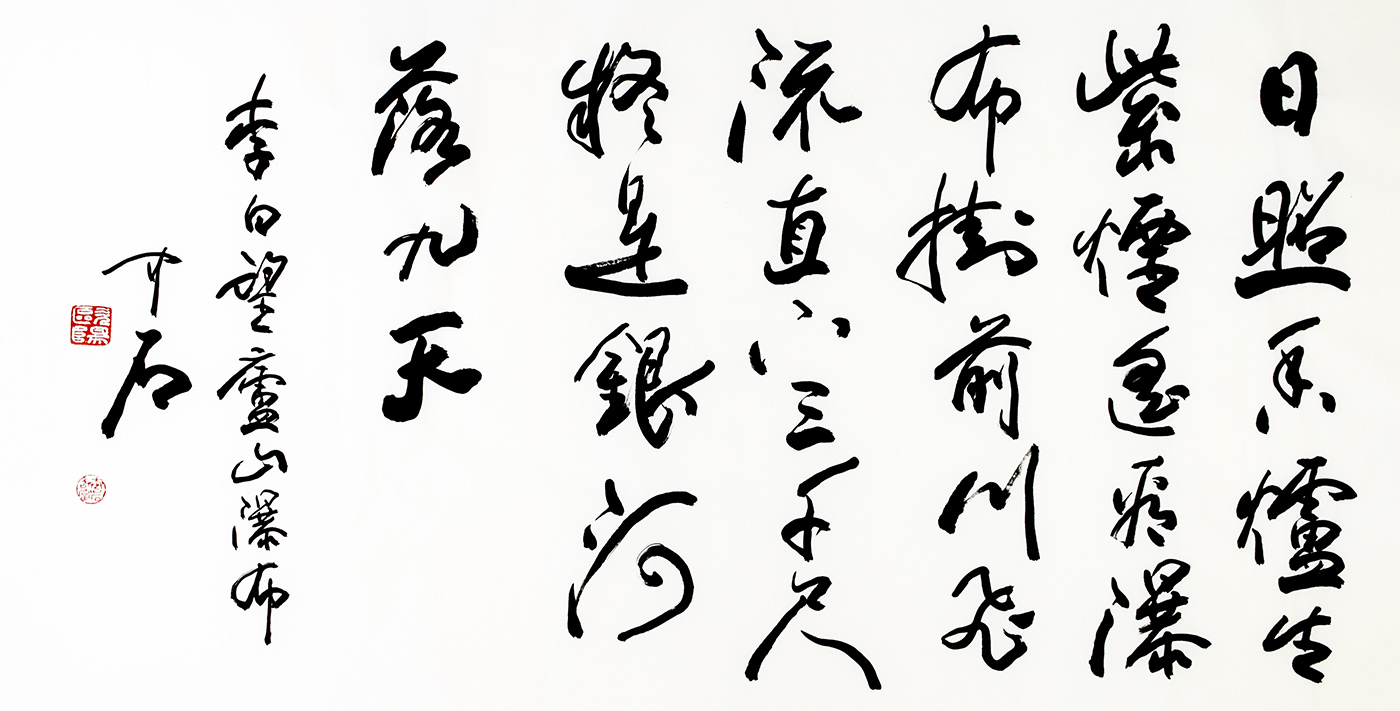 日照香爐生
紫煙遙看瀑
布掛前川飛
流直下三千尺
疑是銀河
落九天
李白望廬山瀑布
中石